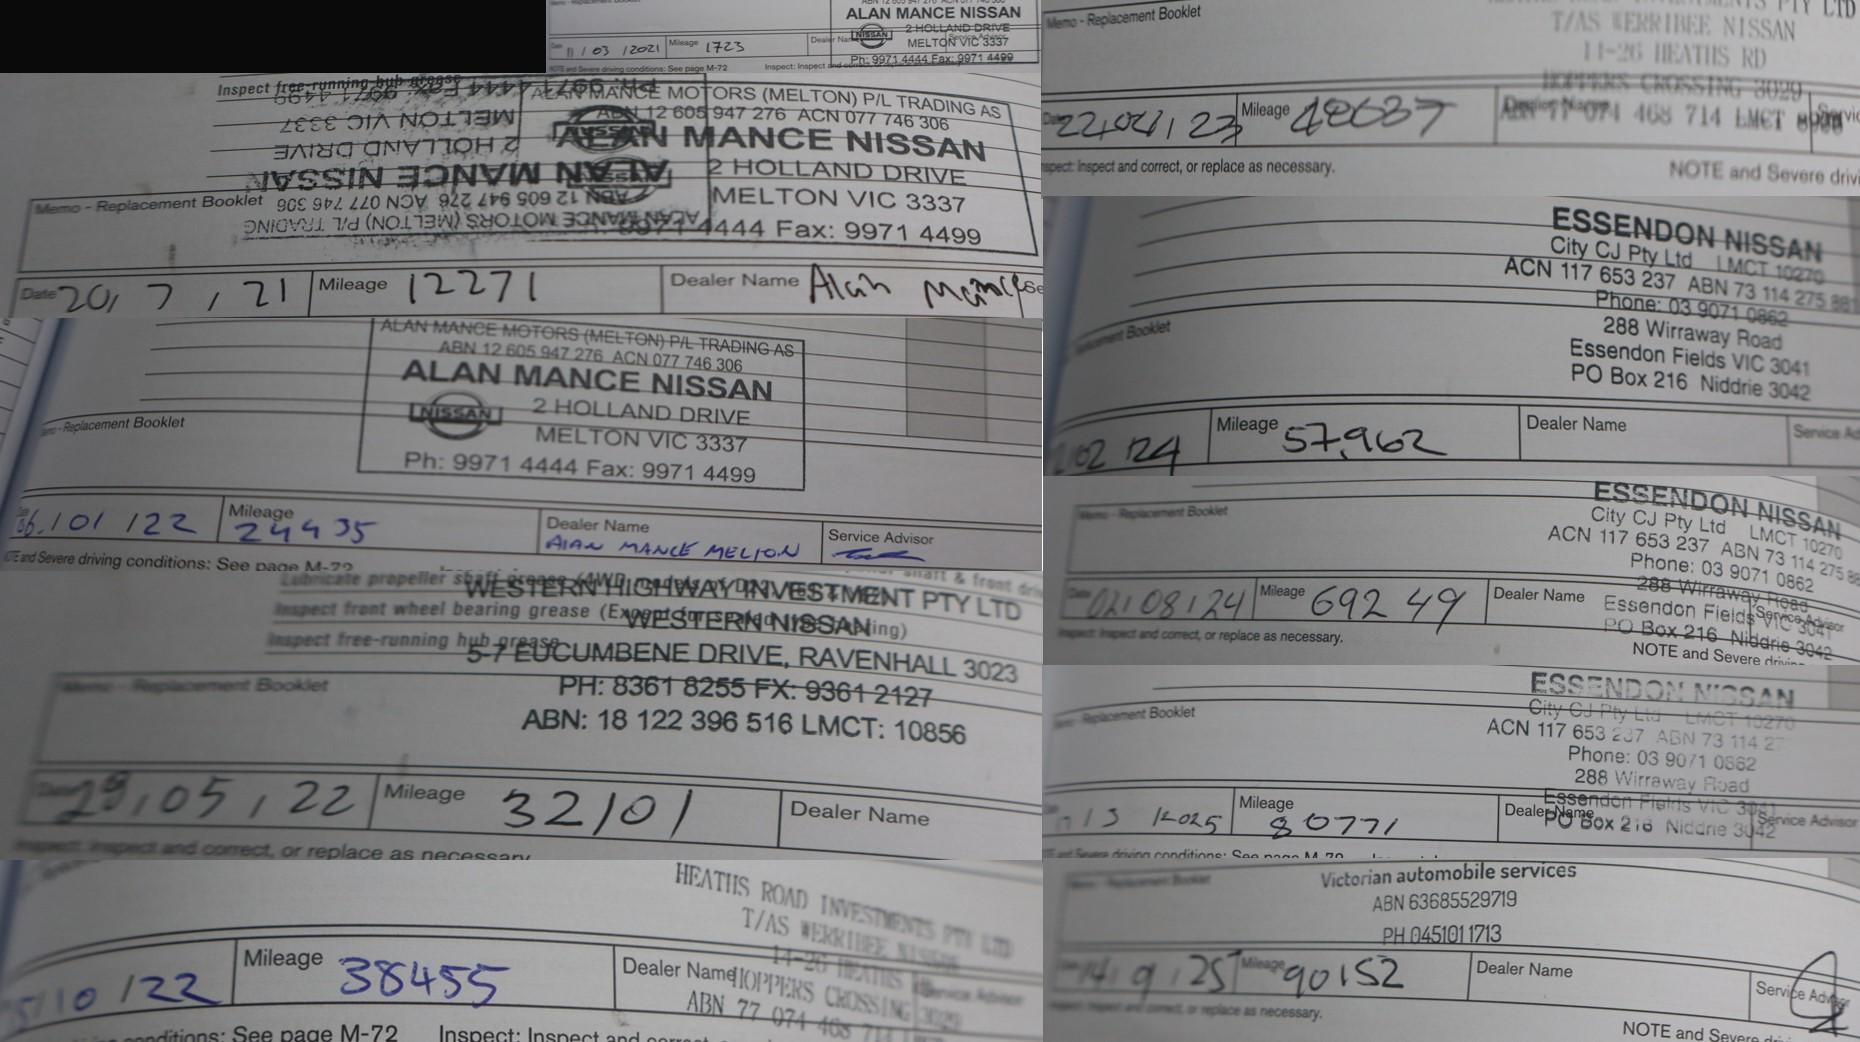 Memo - Replacement Booklet
ALAN MANCE NISSAN
NISSAN
2 HOLLAND DRIVE
MELTON VIC 3337
Ph: 9971 4444 Fax: 9971 4499
Date 11 / 03 / 2021 Mileage 1723 Dealer Name Service Advisor
NOTE and Severe driving conditions: See page M-72 Inspect: Inspect and correct, or replace as necessary.
Inspect free-running hub grease
ALAN MANCE MOTORS (MELTON) P/L TRADING AS
ABN 12 605 947 276 ACN 077 746 306
ALAN MANCE NISSAN
2 HOLLAND DRIVE
MELTON VIC 3337
9971 4444 Fax: 9971 4499
Ph: 9971 4444 Fax: 9971 4499
MELTON VIC 3337
2 HOLLAND DRIVE
NISSAN
ALAN MANCE NISSAN
ABN 12 605 947 276 ACN 077 746 306
ALAN MANCE MOTORS (MELTON) P/L TRADING
Memo - Replacement Booklet
Date 20 / 7 / 21 Mileage 12271 Dealer Name Alan Mance
ALAN MANCE MOTORS (MELTON) P/L TRADING AS
ABN 12 605 947 276 ACN 077 746 306
ALAN MANCE NISSAN
NISSAN
2 HOLLAND DRIVE
MELTON VIC 3337
Ph: 9971 4444 Fax: 9971 4499
Memo - Replacement Booklet
06 / 01 / 22 Mileage 24435 Dealer Name ALAN MANCE MELTON Service Advisor
NOTE and Severe driving conditions: See page M-72
Lubricate propeller shaft grease (4WD models or
Inspect front wheel bearing grease
Inspect free-running hub grease
WESTERN HIGHWAY INVESTMENT PTY LTD
WESTERN NISSAN
5-7 EUCUMBENE DRIVE, RAVENHALL 3023
PH: 8361 8255 FX: 9361 2127
ABN: 18 122 396 516 LMCT: 10856
Memo - Replacement Booklet
Date 29 / 05 / 22 Mileage 32101 Dealer Name
Inspect: Inspect and correct, or replace as necessary
HEATHS ROAD INVESTMENTS PTY LTD
T/AS WERRIBEE NISSAN
14-26 HEATHS
HOPPERS CROSSING 3029
ABN 77 074 468 714
/ 10 / 22 Mileage 38455 Dealer Name Service Advisor
conditions: See page M-72 Inspect: Inspect and correct
PTY LTD
T/AS WERRIBEE NISSAN
14-26 HEATHS RD
HOPPERS CROSSING 3029
ABN 77 074 468 714 LMCT
Memo - Replacement Booklet
22 / 04 / 23 Mileage 48637 Dealer Name
Inspect: Inspect and correct, or replace as necessary. NOTE and Severe
ESSENDON NISSAN
City CJ Pty Ltd LMCT 10270
ACN 117 653 237 ABN 73 114 275 881
Phone: 03 9071 0862
288 Wirraway Road
Essendon Fields VIC 3041
PO Box 216 Niddrie 3042
Booklet
/ 02 / 24 Mileage 57,962 Dealer Name Service
ESSENDON NISSAN
City CJ Pty Ltd LMCT 10270
ACN 117 653 237 ABN 73 114 275
Phone: 03 9071 0862
288 Wirraway Road
Essendon Fields VIC 3041
PO Box 216 Niddrie 3042
Memo - Replacement Booklet
02 / 08 / 24 Mileage 69249 Dealer Name Service Advisor
Inspect: Inspect and correct, or replace as necessary. NOTE and Severe
ESSENDON NISSAN
City CJ Pty Ltd LMCT 10270
ACN 117 653 237 ABN 73 114
Phone: 03 9071 0862
288 Wirraway Road
Essendon Fields VIC 3041
PO Box 216 Niddrie 3042
Replacement Booklet
/ 3 / 2025 Mileage 80771 Dealer Name Service Advisor
and Severe driving conditions: See page M-72
Victorian automobile services
ABN 63685529719
PH 0451011713
Memo - Replacement Booklet
14 / 9 / 25 Mileage 90152 Dealer Name Service Advisor
Inspect: Inspect and correct, or replace as necessary.
NOTE and Severe